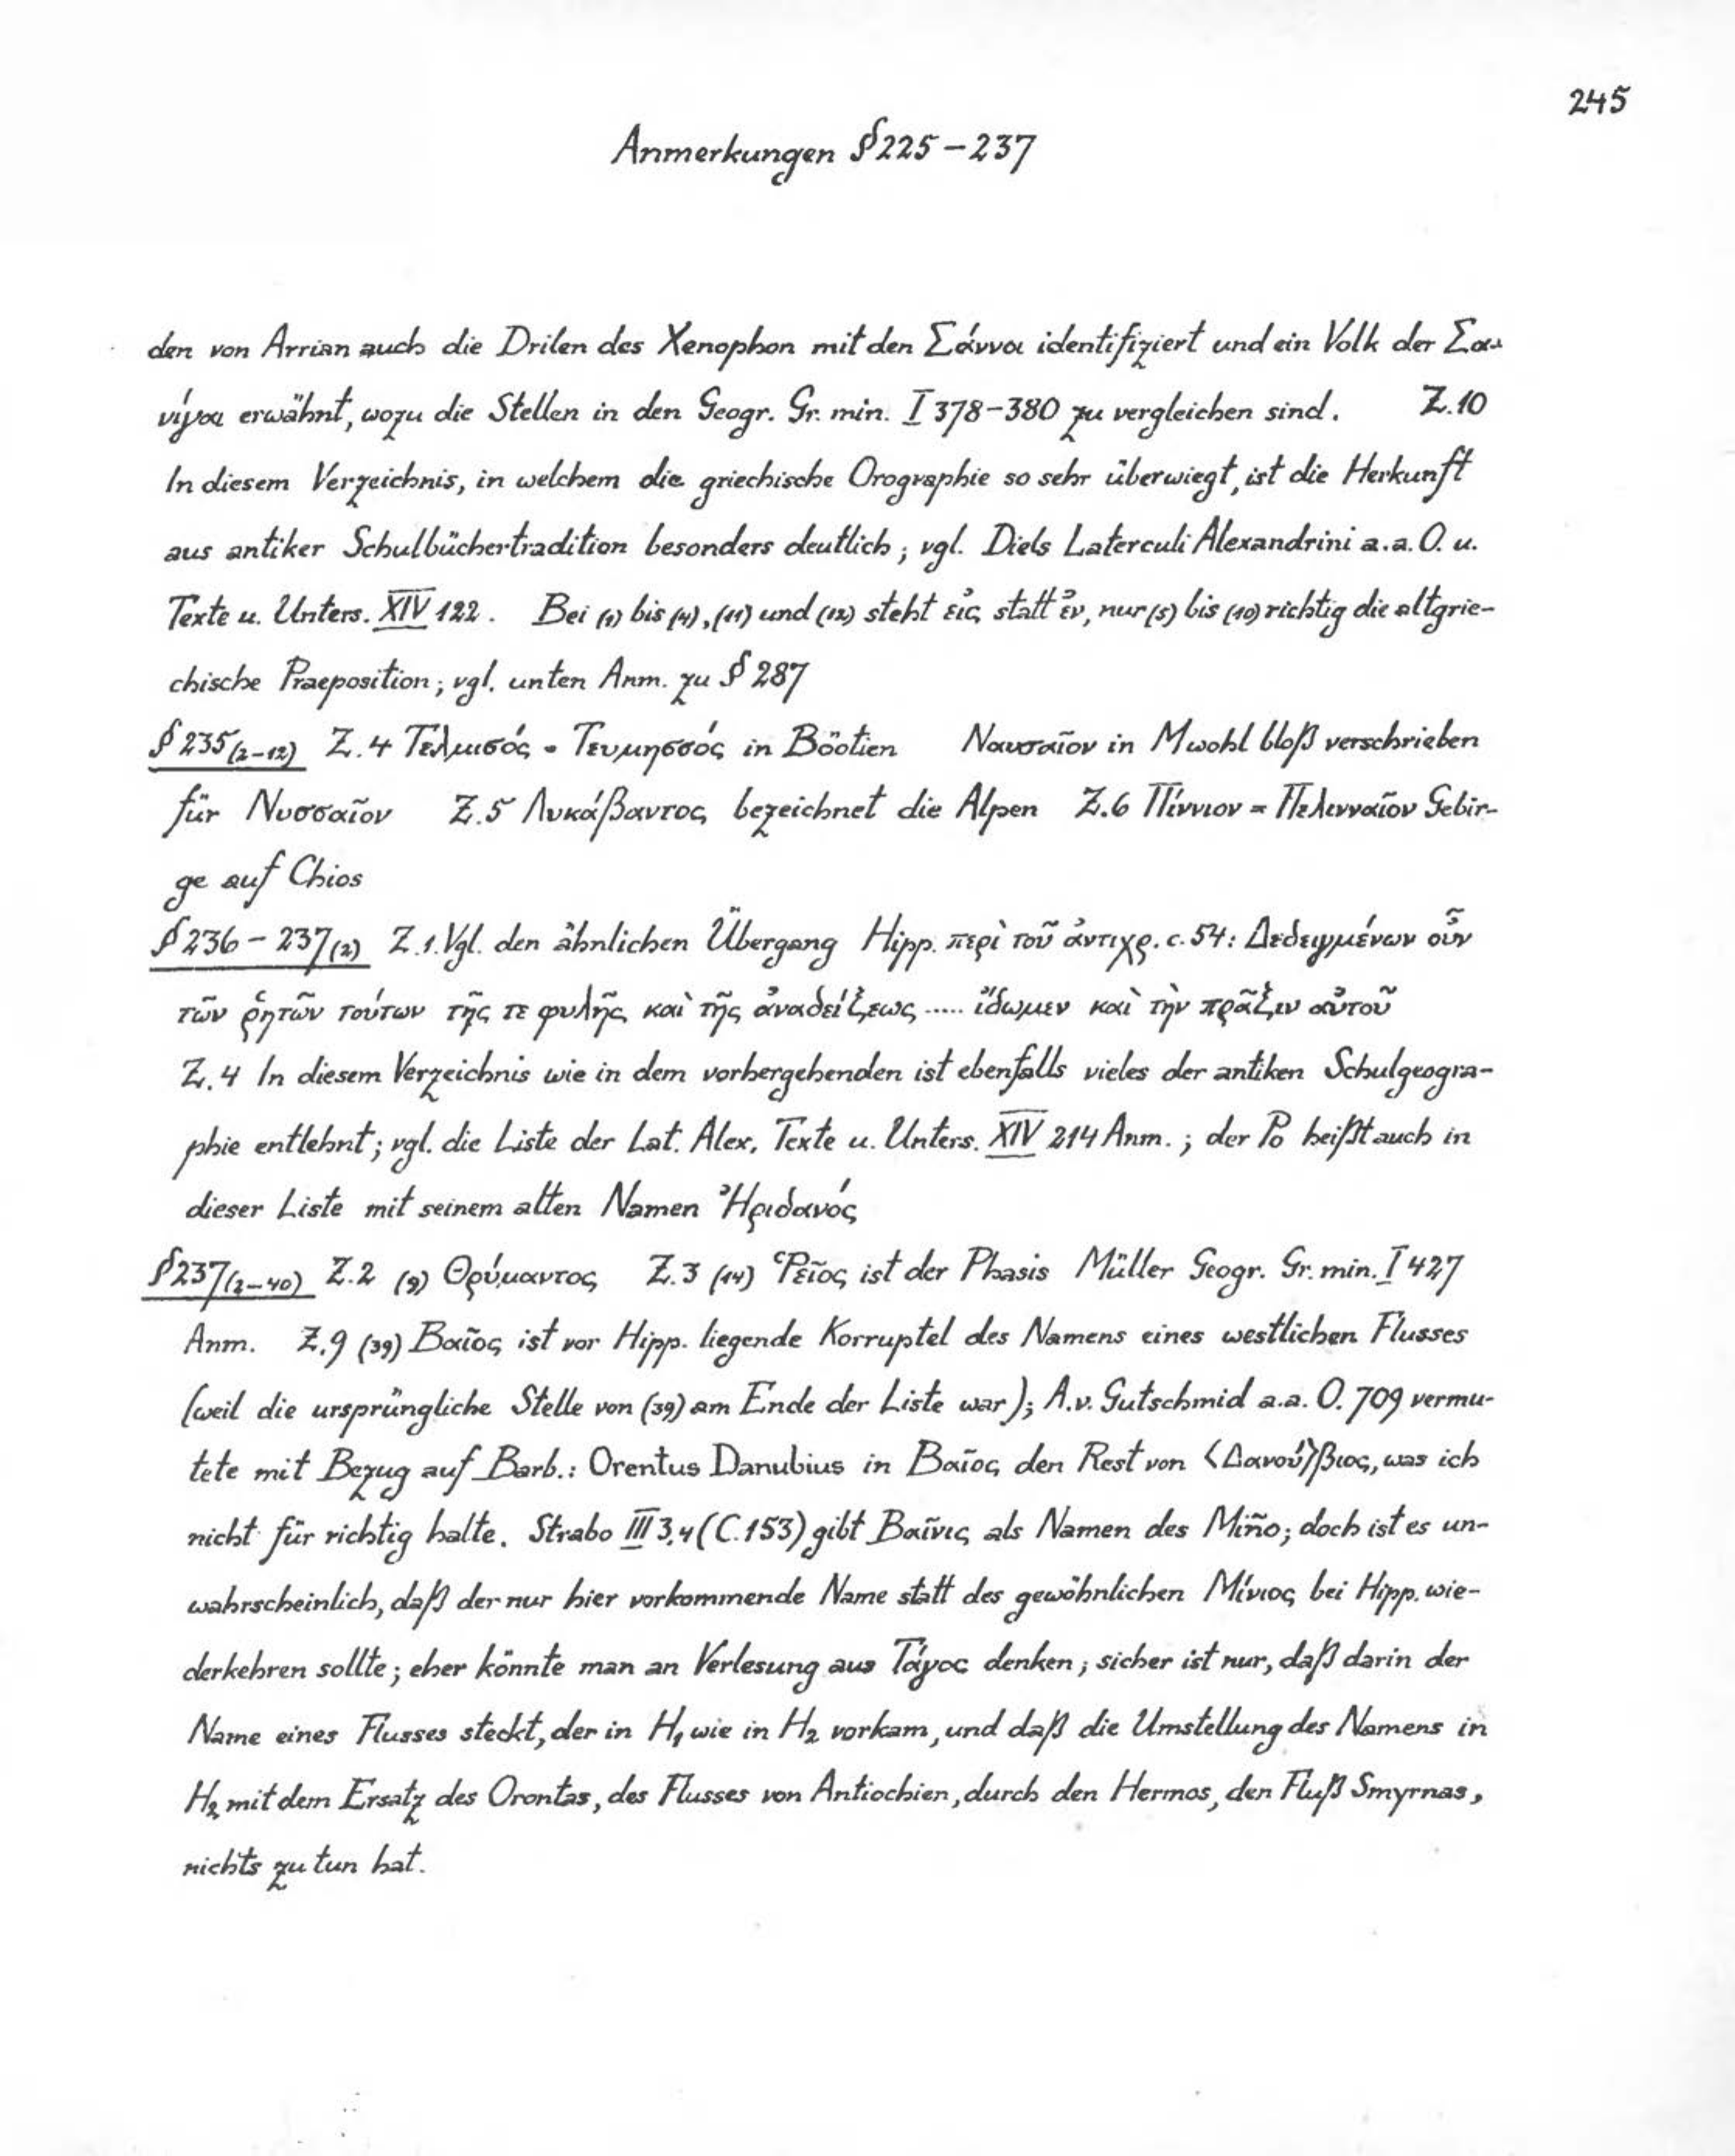 245
Anmerkungen §225–237
den von Arrian auch die Drilen des Xenophon mit den Σάνναι identifiziert und ein Volk der Σα-
νίγαι erwähnt, wozu die Stellen in den Geogr. Gr. min. I 378–380 zu vergleichen sind. Z.10
In diesem Verzeichnis, in welchem die griechische Orographie so sehr überwiegt, ist die Herkunft
aus antiker Schulbüchertradition besonders deutlich; vgl. Diels Laterculi Alexandrini a.a.O. u.
Texte u. Unters. XIV 122. Bei (1) bis (4), (11) und (12) steht εἰς statt ἐν, nur (5) bis (10) richtig die altgrie-
chische Praeposition; vgl. unten Anm. zu § 287
§ 235 (2–12) Z.4 Τελμισός = Τευμησσός in Böotien Ναυσαῖον in M wohl bloß verschrieben
für Νυσσαῖον Z.5 Λυκάβαντος bezeichnet die Alpen Z.6 Πίννιον = Πελινναῖον Gebir-
ge auf Chios
§ 236 – 237 (2) Z.1. Vgl. den ähnlichen Übergang Hipp. περὶ τοῦ ἀντιχρ. c. 54: Δεδειγμένων οὖν
τῶν ῥητῶν τούτων τῆς τε φυλῆς καὶ τῆς ἀναδείξεως ..... ἴδωμεν καὶ τὴν πρᾶξιν αὐτοῦ
Z.4 In diesem Verzeichnis wie in dem vorhergehenden ist ebenfalls vieles der antiken Schulgeogra-
phie entlehnt; vgl. die Liste der Lat. Alex., Texte u. Unters. XIV 214 Anm.; der Po heißt auch in
dieser Liste mit seinem alten Namen Ἠριδανός
§ 237 (2–40) Z.2 (9) Θρύμαντος Z.3 (14) Ῥεῖος ist der Phasis Müller Geogr. Gr. min. I 427
Anm. Z.9 (39) Βαῖος ist vor Hipp. liegende Korruptel des Namens eines westlichen Flusses
(weil die ursprüngliche Stelle von (39) am Ende der Liste war); A.v. Gutschmid a.a.O. 709 vermu-
tete mit Bezug auf Barb.: Orentus Danubius in Βαῖος den Rest von <Δανού>βιος, was ich
nicht für richtig halte. Strabo III 3,4 (C.153) gibt Βαῖνις als Namen des Miño; doch ist es un-
wahrscheinlich, daß der nur hier vorkommende Name statt des gewöhnlichen Μίνιος bei Hipp. wie-
derkehren sollte; eher könnte man an Verlesung aus Τάγος denken; sicher ist nur, daß darin der
Name eines Flusses steckt, der in H₁ wie in H₂ vorkam, und daß die Umstellung des Namens in
H₂ mit dem Ersatz des Orontas, des Flusses von Antiochien, durch den Hermos, den Fluß Smyrnas,
nichts zu tun hat.